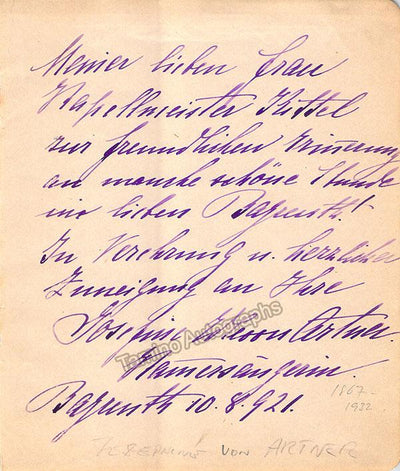 Meiner lieben Frau
Kapellmeister Kittel
zur freundlichen Erinnerung
an manche schöne Stunde
im lieben Bayreuth!
In Verehrung u. herzlicher
Zuneigung an Ihre
Josefine von Artner.
Tamino Autographs
Kammersängerin.
Bayreuth 10.8.921.
1867-
1932
VON ARTNER